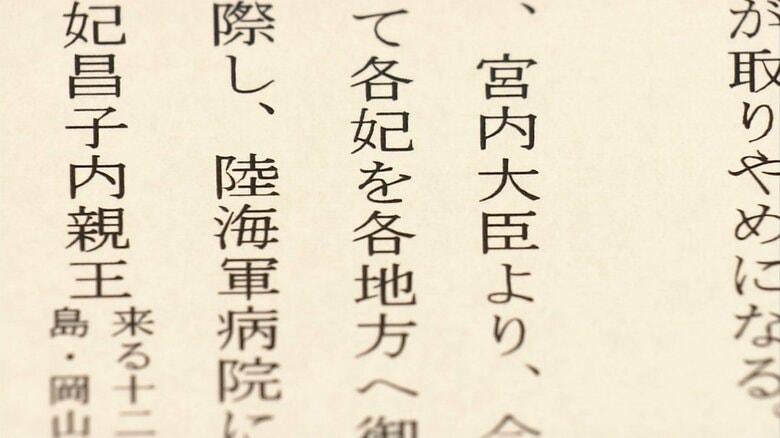 が取りやめになる。
、宮内大臣より、今
て各妃を各地方へ御
際し、陸海軍病院に
妃昌子内親王
来る十二
島・岡山